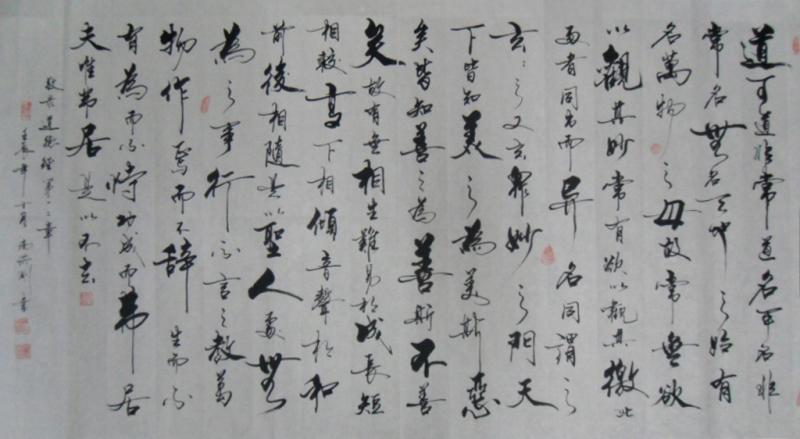 道可道非常道名可名非
常名無名天地之始有
名萬物之母故常無欲
以觀其妙常有欲以觀其徼此
两者同出而異名同謂之
玄々之又玄眾妙之門天
下皆知美之為美斯惡
矣皆知善之為善斯不善
矣故有無相生難易相成長短
相較高下相傾音聲相和
前後相隨是以聖人處無
為之事行不言之教萬
物作焉而不辞生而不
有為而不恃功成而弗居
夫唯弗居是以不去
道德經第一二章
壬辰年十月